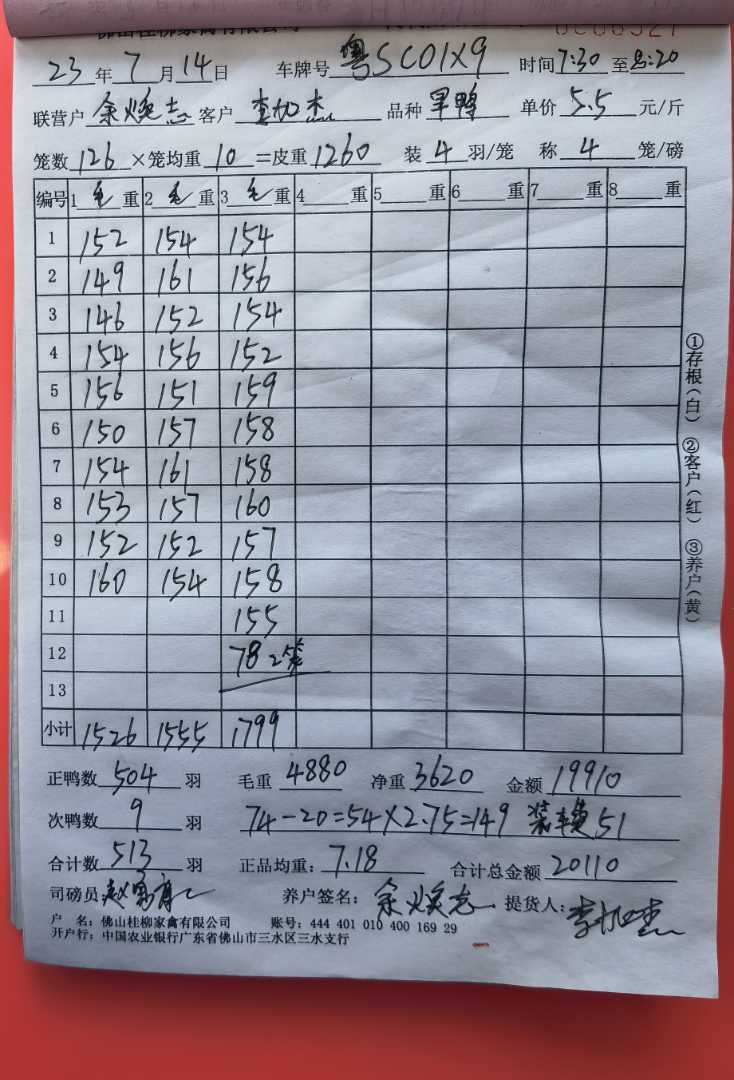 佛山桂柳家禽有限公司
23年7月14日 车牌号 粤SC01X9 时间 7:30 至 8:20
联营户 余焕志 客户 李加杰 品种 旱鸭 单价 5.5 元/斤
笼数 126 ×笼均重 10 =皮重 1260 装 4 羽/笼 称 4 笼/磅
编号 1 毛 重 2 毛 重 3 毛 重 4 重 5 重 6 重 7 重 8 重
1 152 154 154
2 149 161 156
3 146 152 154
4 154 156 152
5 156 151 159
6 150 157 158
7 154 161 158
8 153 157 160
9 152 152 157
10 160 154 158
11 155
12 78 2笼
13
小计 1526 1555 1799
正鸭数 504 羽 毛重 4880 净重 3620 金额 19910
次鸭数 9 羽 74-20=54×2.75=149 装车费 51
合计数 513 羽 正品均重: 7.18 合计总金额 20110
司磅员 养户签名: 余焕志 提货人:
户 名: 佛山桂柳家禽有限公司 账号: 444 401 010 400 169 29
开户行: 中国农业银行广东省佛山市三水区三水支行
①存根(白) ②客户(红) ③养户(黄)